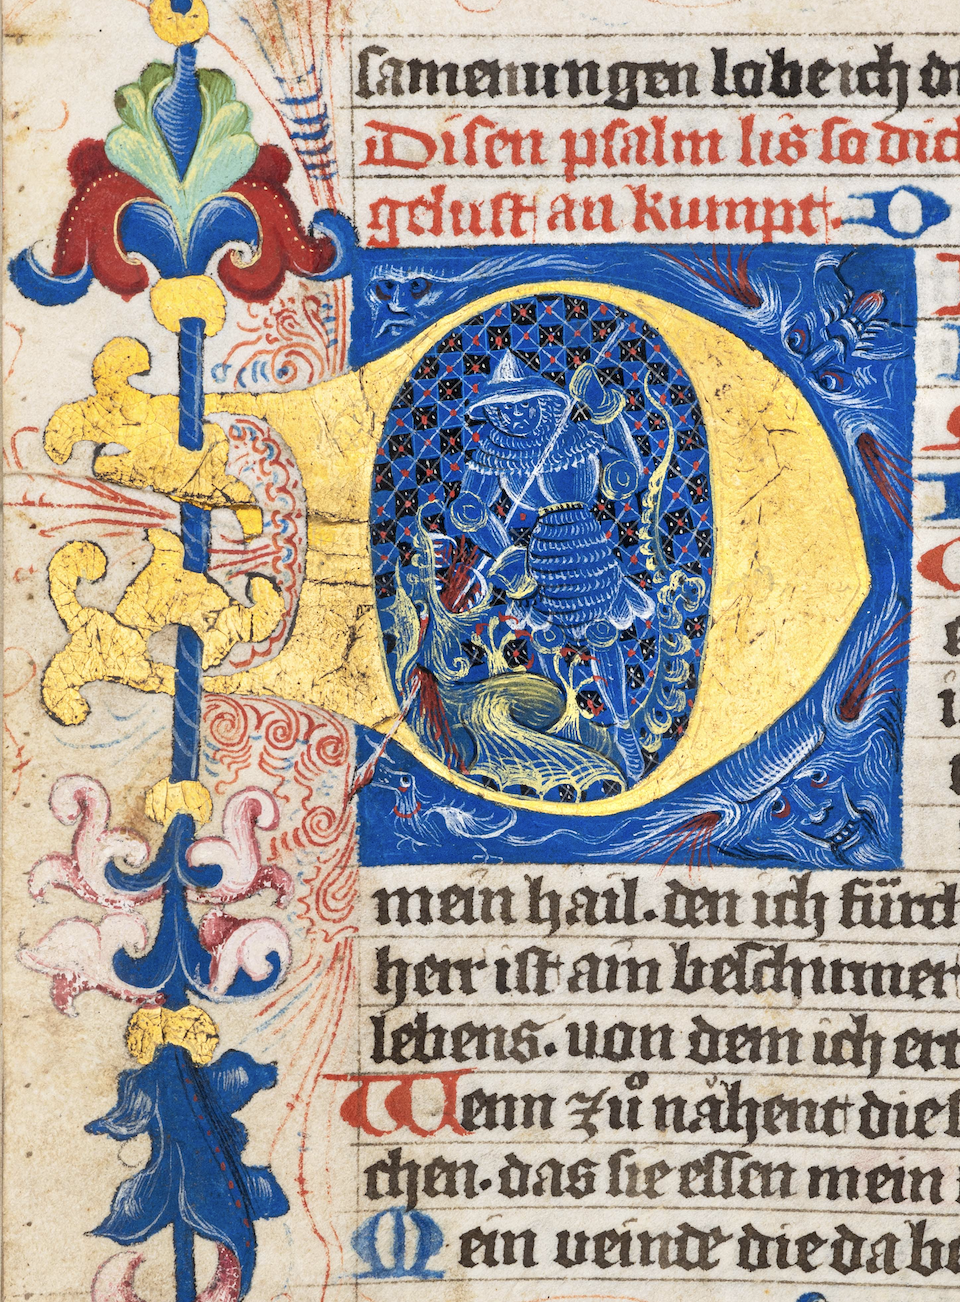 samenungen lobe ich
Disen psalm lis so dick
gelust an kumpt.
D
mein hail. den ich fürch
herr ist ain beschirmer
lebens. von dem ich
Wenn zů nähent die
chen. das sie essen mein
Mein veinde die da be